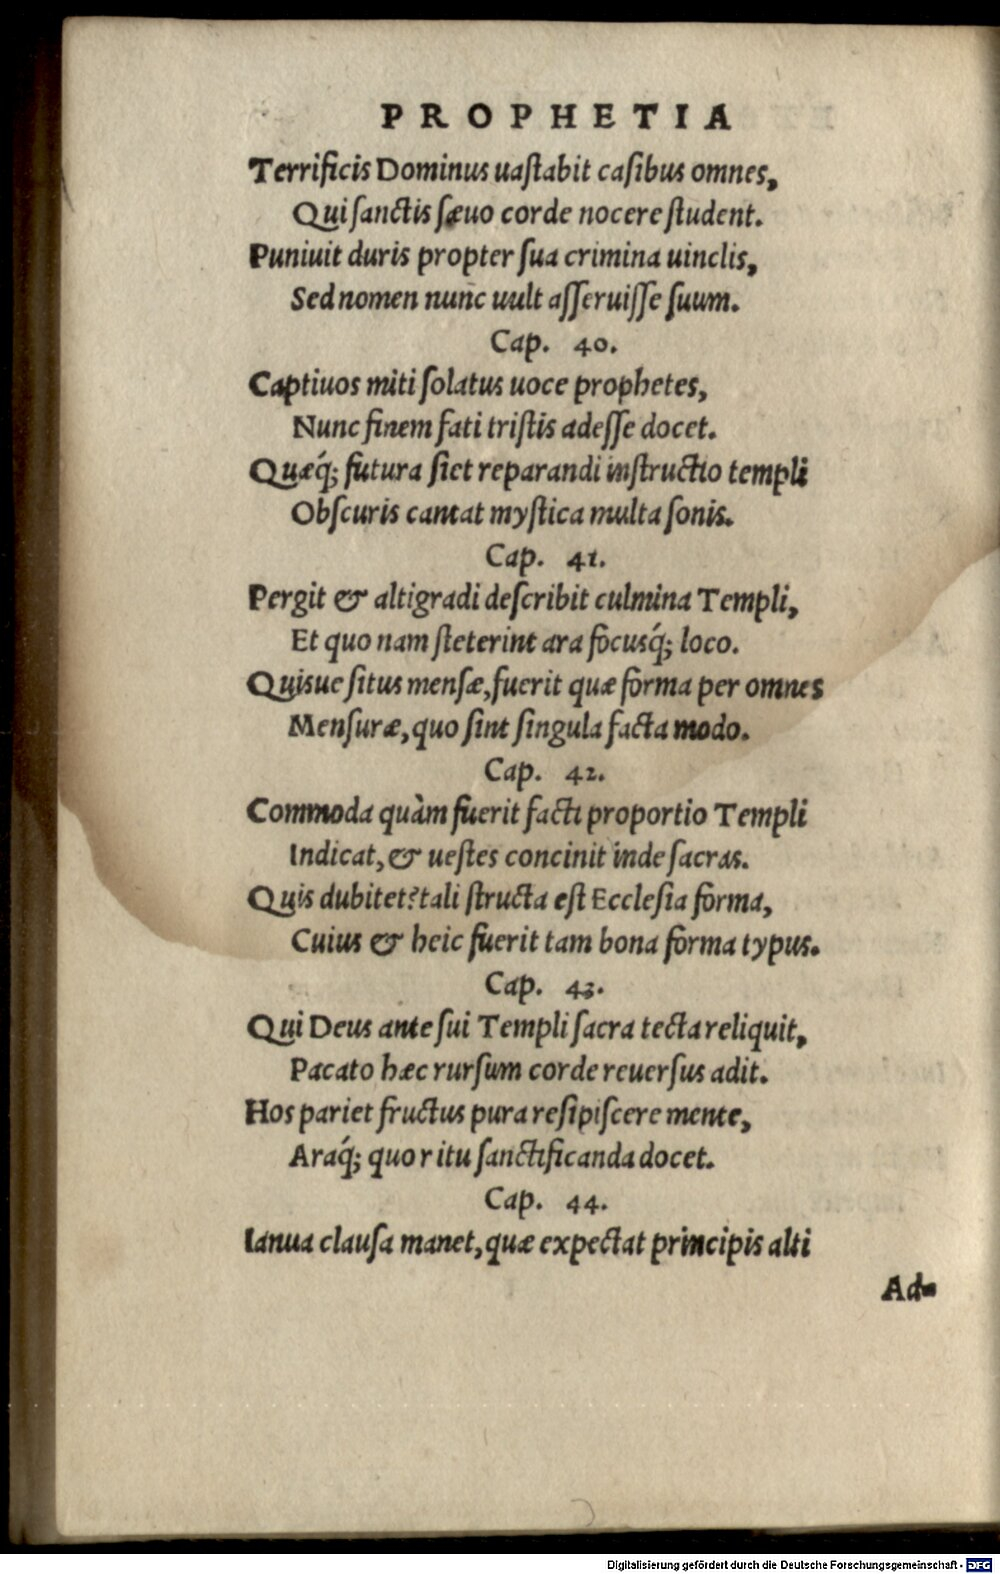 PROPHETIA
Terrificis Dominus uaſtabit caſibus omnes,
Qui ſanctis ſæuo corde nocere ſtudent.
Puniuit duris propter ſua crimina uinclis,
Sed nomen nunc uult aſſeruiſſe ſuum.
Cap. 40.
Captiuos miti ſolatus uoce prophetes,
Nunc finem fati triſtis adeſſe docet.
Quæq́; futura ſiet reparandi inſtructio templi
Obſcuris cantat myſtica multa ſonis.
Cap. 41.
Pergit & altigradi deſcribit culmina Templi,
Et quo nam ſteterint ara focusq́; loco.
Quisue ſitus menſæ, fuerit quæ forma per omnes
Menſuræ, quo ſint ſingula facta modo.
Cap. 42.
Commoda quàm fuerit facti proportio Templi
Indicat, & ueſtes concinit inde ſacras.
Quis dubitet? tali ſtructa eſt Eccleſia forma,
Cuius & heic fuerit tam bona forma typus.
Cap. 43.
Qui Deus ante ſui Templi ſacra tecta reliquit,
Pacato hæc rurſum corde reuerſus adit.
Hos pariet fructus pura reſipiſcere mente,
Araq́; quo ritu ſanctificanda docet.
Cap. 44.
Ianua clauſa manet, quæ expectat principis alti
Ad-
Digitalisierung gefördert durch die Deutsche Forschungsgemeinschaft - DFG